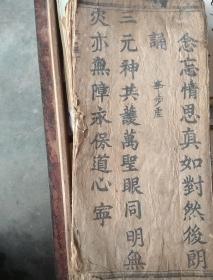 念忘情思真如對然後朗
誦
步虛
三元神共護萬聖眼同明無
災亦無障永保道心寧